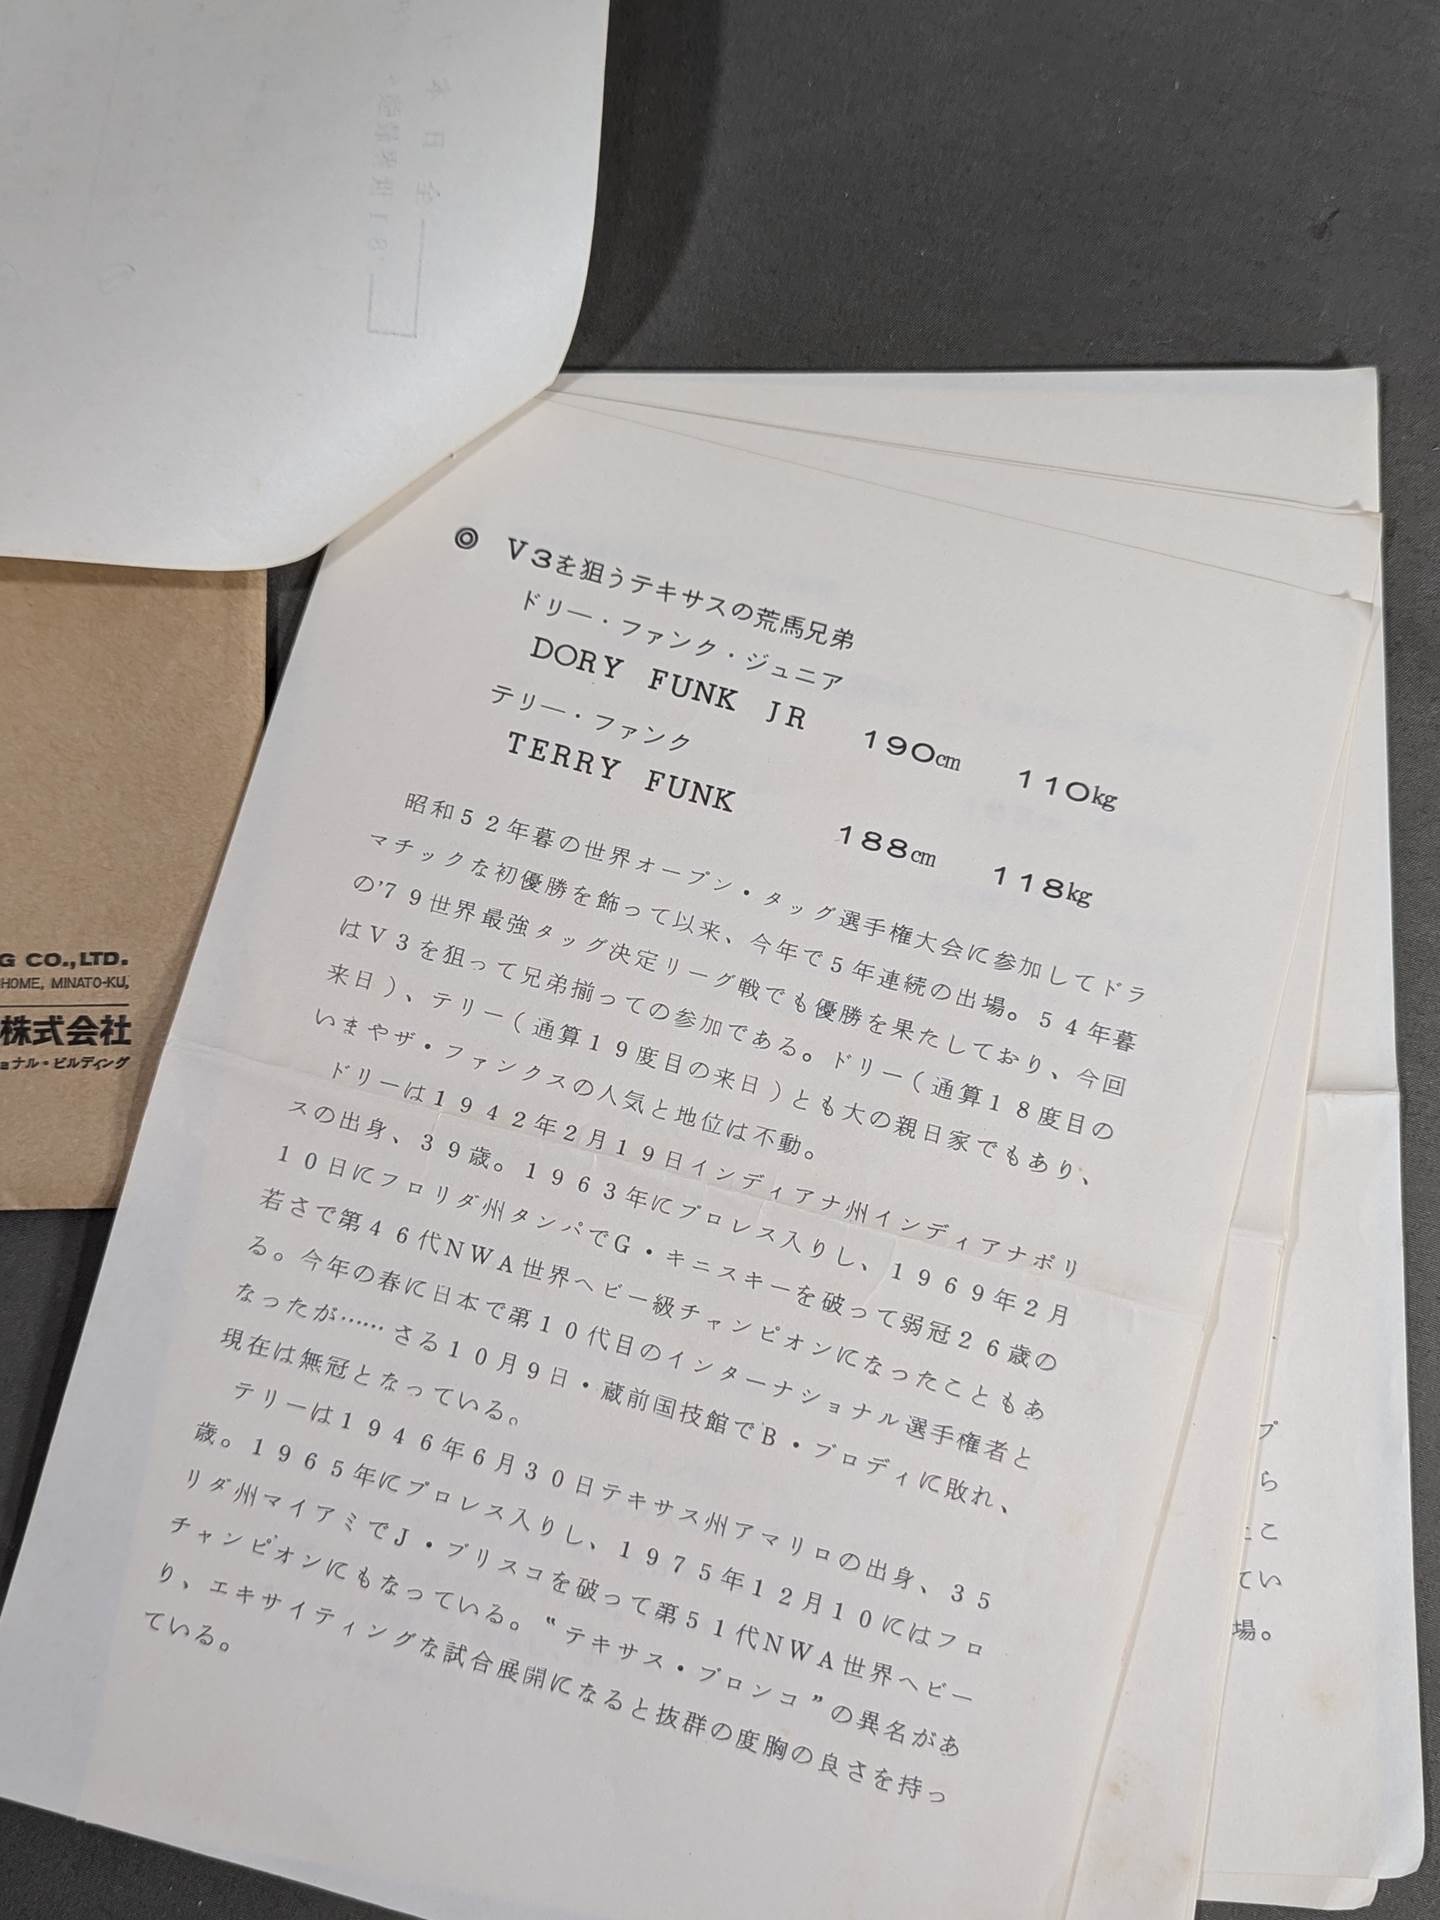 ◎ V3を狙うテキサスの荒馬兄弟
ドリー・ファンク・ジュニア
DORY FUNK JR 190cm 110kg
テリー・ファンク
TERRY FUNK 188cm 118kg
昭和52年暮の世界オープン・タッグ選手権大会に参加してドラ
マチックな初優勝を飾って以来、今年で5年連続の出場。54年暮
の'79世界最強タッグ決定リーグ戦でも優勝を果たしており、今回
はV3を狙って兄弟揃っての参加である。ドリー(通算18度目の
来日)、テリー(通算19度目の来日)とも大の親日家でもあり、
いまやザ・ファンクスの人気と地位は不動。
ドリーは1942年2月19日インディアナ州インディアナポリ
スの出身、39歳。1963年にプロレス入りし、1969年2月
10日にフロリダ州タンパでG・キニスキーを破って弱冠26歳の
若さで第46代NWA世界ヘビー級チャンピオンになったこともあ
る。今年の春に日本で第10代目のインターナショナル選手権者と
なったが……さる10月9日・蔵前国技館でB・ブロディに敗れ、
現在は無冠となっている。
テリーは1946年6月30日テキサス州アマリロの出身、35
歳。1965年にプロレス入りし、1975年12月10にはフロ
リダ州マイアミでJ・ブリスコを破って第51代NWA世界ヘビー
チャンピオンにもなっている。“テキサス・ブロンコ”の異名があ
り、エキサイティングな試合展開になると抜群の度胸の良さを持っ
ている。
G CO.,LTD.
HOME, MINATO-KU,
株式会社
ョナル・ビルディング
ら
こ
てい
場。